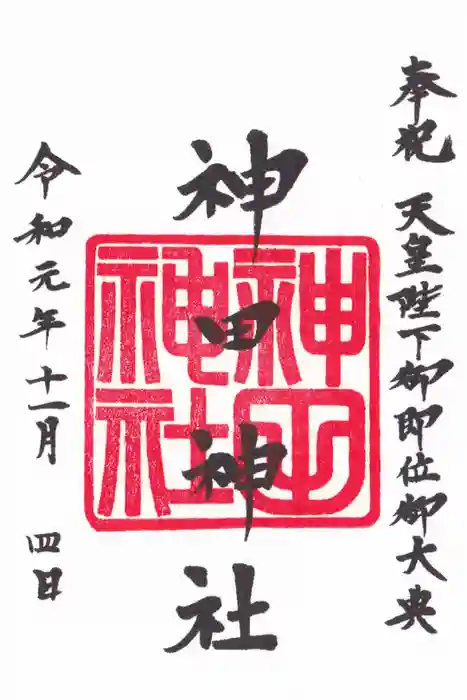 奉祝 天皇陛下御即位御大典
神田神社
神田神社
令和元年十一月 四日